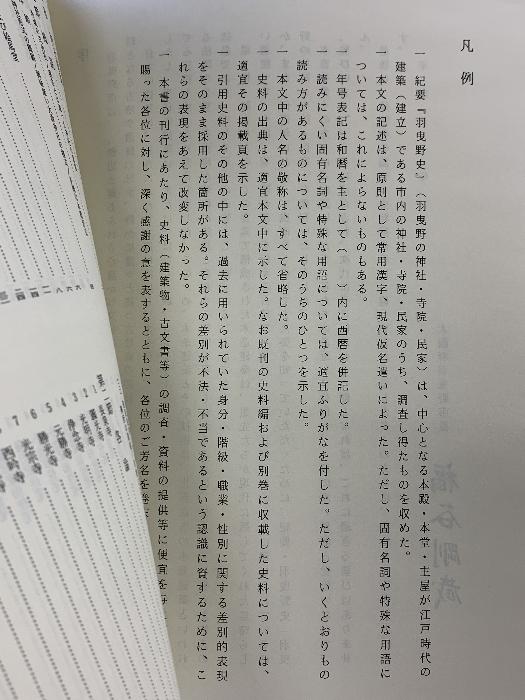 凡例
一 紀要『羽曳野史』（羽曳野の神社・寺院・民家）は、中心となる本殿・本堂・主屋が江戸時代の
建築（建立）である市内の神社・寺院・民家のうち、調査し得たものを収めた。
一 本文の記述は、原則として常用漢字、現代仮名遣いによった。ただし、固有名詞や特殊な用語に
ついては、これによらないものもある。
一 年号表記は和暦を主として（ ）内に西暦を併記した。
一 読みにくい固有名詞や特殊な用語については、適宜ふりがなを付した。ただし、いくとおりもの
読み方があるものについては、そのうちのひとつを示した。
一 本文中の人名の敬称は、すべて省略した。
一 史料の出典は、適宜本文中に示した。なお既刊の史料編および別巻に収載した史料については、
適宜その掲載頁を示した。
一 引用史料のその他の中には、過去に用いられていた身分・階級・職業・性別に関する差別的表現
をそのまま採用した箇所がある。それらの差別が不法・不当であるという認識に資するために、こ
れらの表現をあえて改変しなかった。
一 本書の刊行にあたり、史料（建築物・古文書等）の調査・資料の提供等に便宜を
賜った各位に対し、深く感謝の意を表するとともに、各位のご芳名を